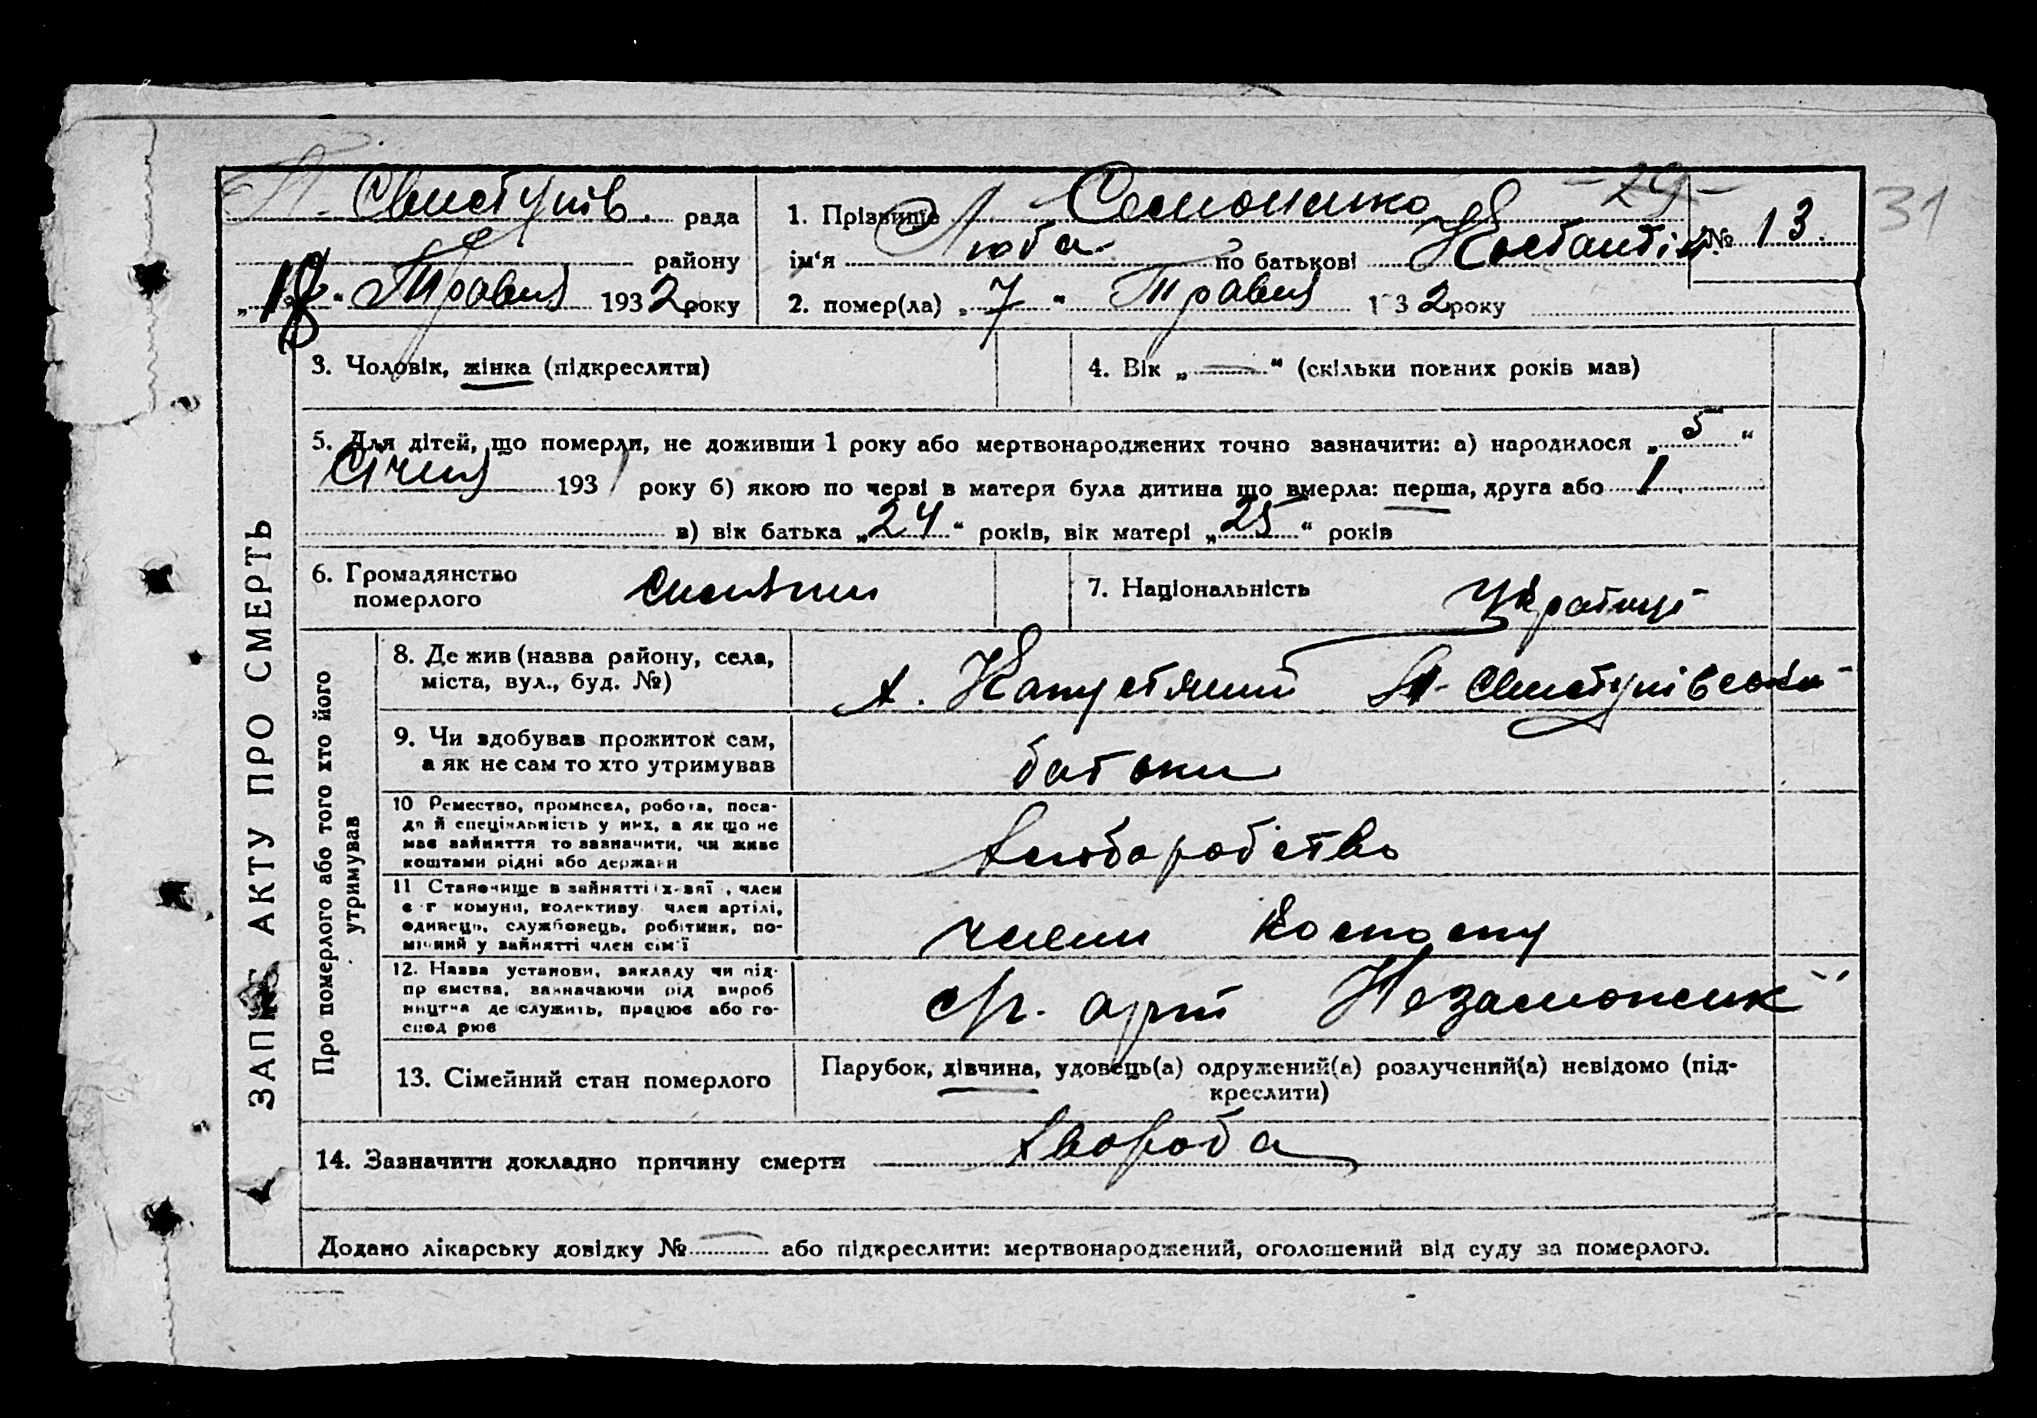 П. Свистунів. рада
району
„18.“ Травня 1932 року
1. Прізвище Семоненко
ім‘я Люба по батькові Костантін.
№ 13.
- 29 -
31
2. помер(ла) „7“ Травня 1932 року
ЗАПИС АКТУ ПРО СМЕРТЬ
3. Чоловік, жінка (підкреслити)
4. Вік „—“ (скільки повних років мав)
5. Для дітей, що померли, не доживши 1 року або мертвонароджених точно зазначити: а) народилося „5“
Січня 193 року б) якою по черзі в матеря була дитина що вмерла: перша, друга або 1
в) вік батька „24“ років, вік матері „25“ років
6. Громадянство
померлого
7. Національність
Про померлого або того хто його
утримував
8. Де жив (назва району, села,
міста, вул., буд. №)
х. Капустяний П-Свистунівська
9. Чи здобував прожиток сам,
а як не сам то хто утримував
батьки
10 Ремество, промисел, робота, поса-
да й спеціяльність у них, а як що не
має зайняття то зазначити, чи живе
коштами рідні або держави
хліборобство
11 Становище в зайнятті, член
комуни, колективу член артілі,
одинець, службовець, робітник, по-
мічний у зайнятті член сім‘ї
члени
12. Назва установи, закладу чи під-
приємства, зазначаючи рід вироб
ництва де служить, працює або го-
сподарює
с/г. арт Незаможник“
13. Сімейний стан померлого
Парубок, дівчина, удовець(а) одружений(а) розлучений(а) невідомо (під-
креслити)
14. Зазначити докладно причину смерти хвороба
Додано лікарську довідку №— або підкреслити: мертвонароджений, оголошений від суду за померлого.